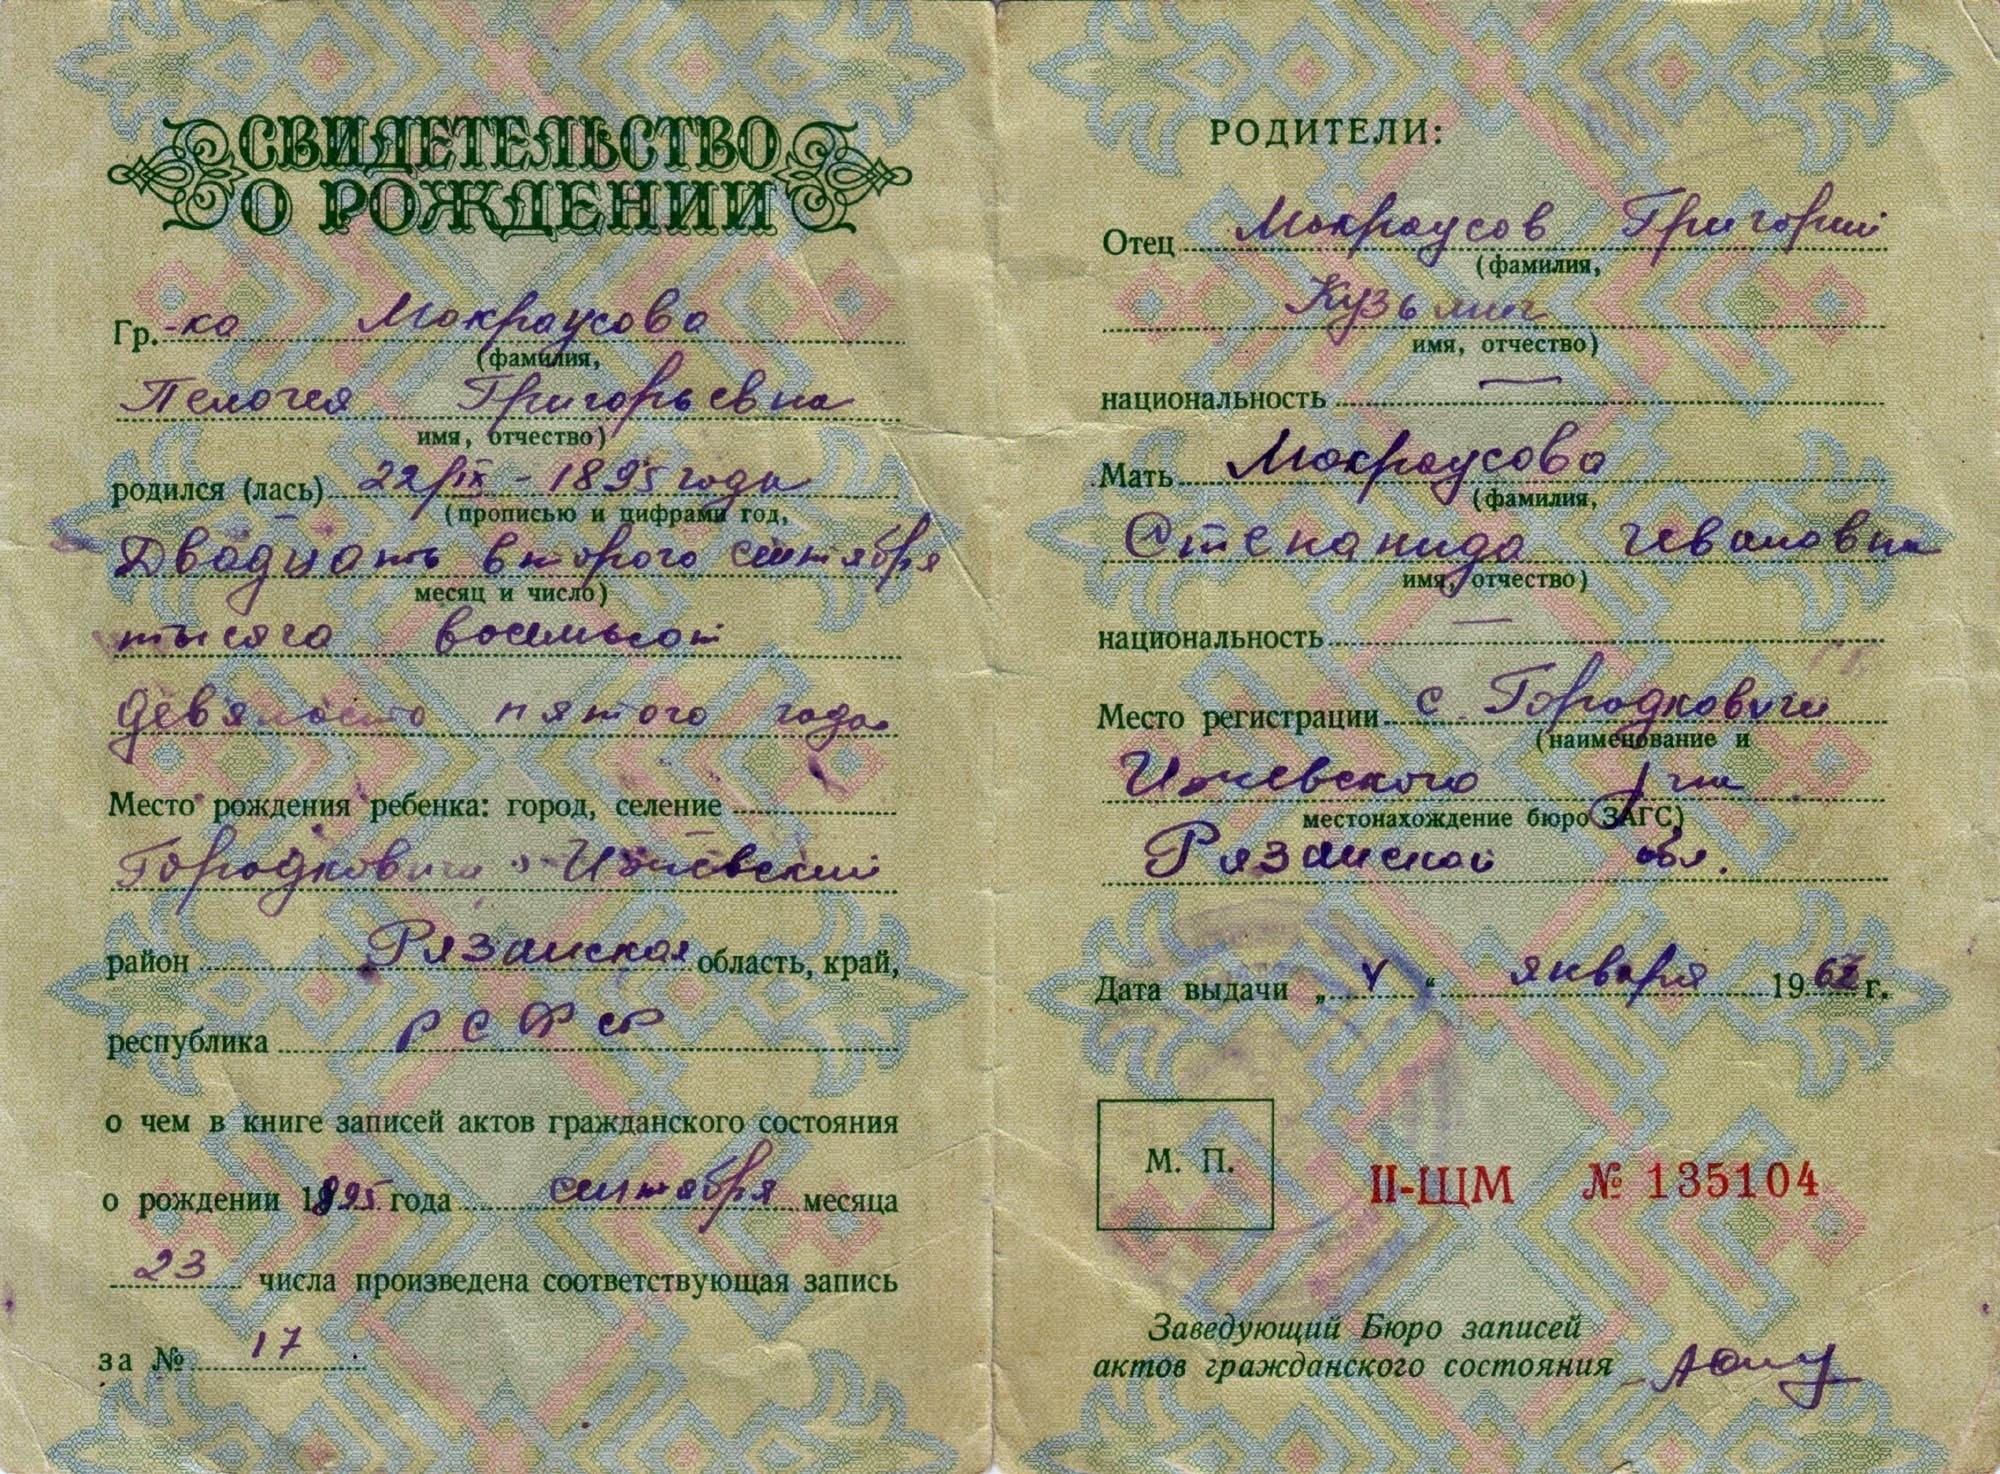 СВИДЕТЕЛЬСТВО
О РОЖДЕНИИ
Гр.-ка Мокраусова
(фамилия,
Пелагея Григорьевна
имя, отчество)
родился (лась) 22/IX - 1895 года
(прописью и цифрами год,
Двадцать второго сентября
месяц и число)
тысяча восемьсот
девяносто пятого года
Место рождения ребенка: город, селение
Городковичи, Ижевский
район Рязанская область, край,
республика РСФСР
о чем в книге записей актов гражданского состояния
о рождении 1895 года сентября месяца
23 числа произведена соответствующая запись
за № 17
РОДИТЕЛИ:
Отец Мокраусов Григорий
(фамилия,
Кузьмич
имя, отчество)
национальность —
Мать Мокраусова
(фамилия,
Степанида Ивановна
имя, отчество)
национальность —
Место регистрации с. Городковичи
(наименование и
Ижевского р-на
местонахождение бюро ЗАГС)
Рязанской обл.
Дата выдачи „ “ января 1962 г.
М. П.
II-ЩМ № 135104
Заведующий Бюро записей
актов гражданского состояния